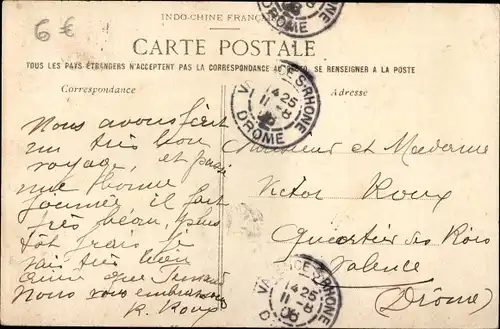 INDO-CHINE FRANÇAISE
6 €
CARTE POSTALE
TOUS LES PAYS ÉTRANGERS N'ACCEPTENT PAS LA CORRESPONDANCE AU RECTO, SE RENSEIGNER A LA POSTE
Correspondance
Adresse
VALENCE-S-RHONE
14 25
11 -8
06
DROME
Nous avons fait
un très bon
voyage, et passé
une bonne
journée il fait
très beau, plus
tôt frais. Je
vais très bien
ainsi que
Nous vous embrassons
R. Roux
Monsieur et Madame
Victor Roux
Quartier des
Valence
(Drôme)
VALENCE-S-RHONE
14 25
11 -8
06
DROME